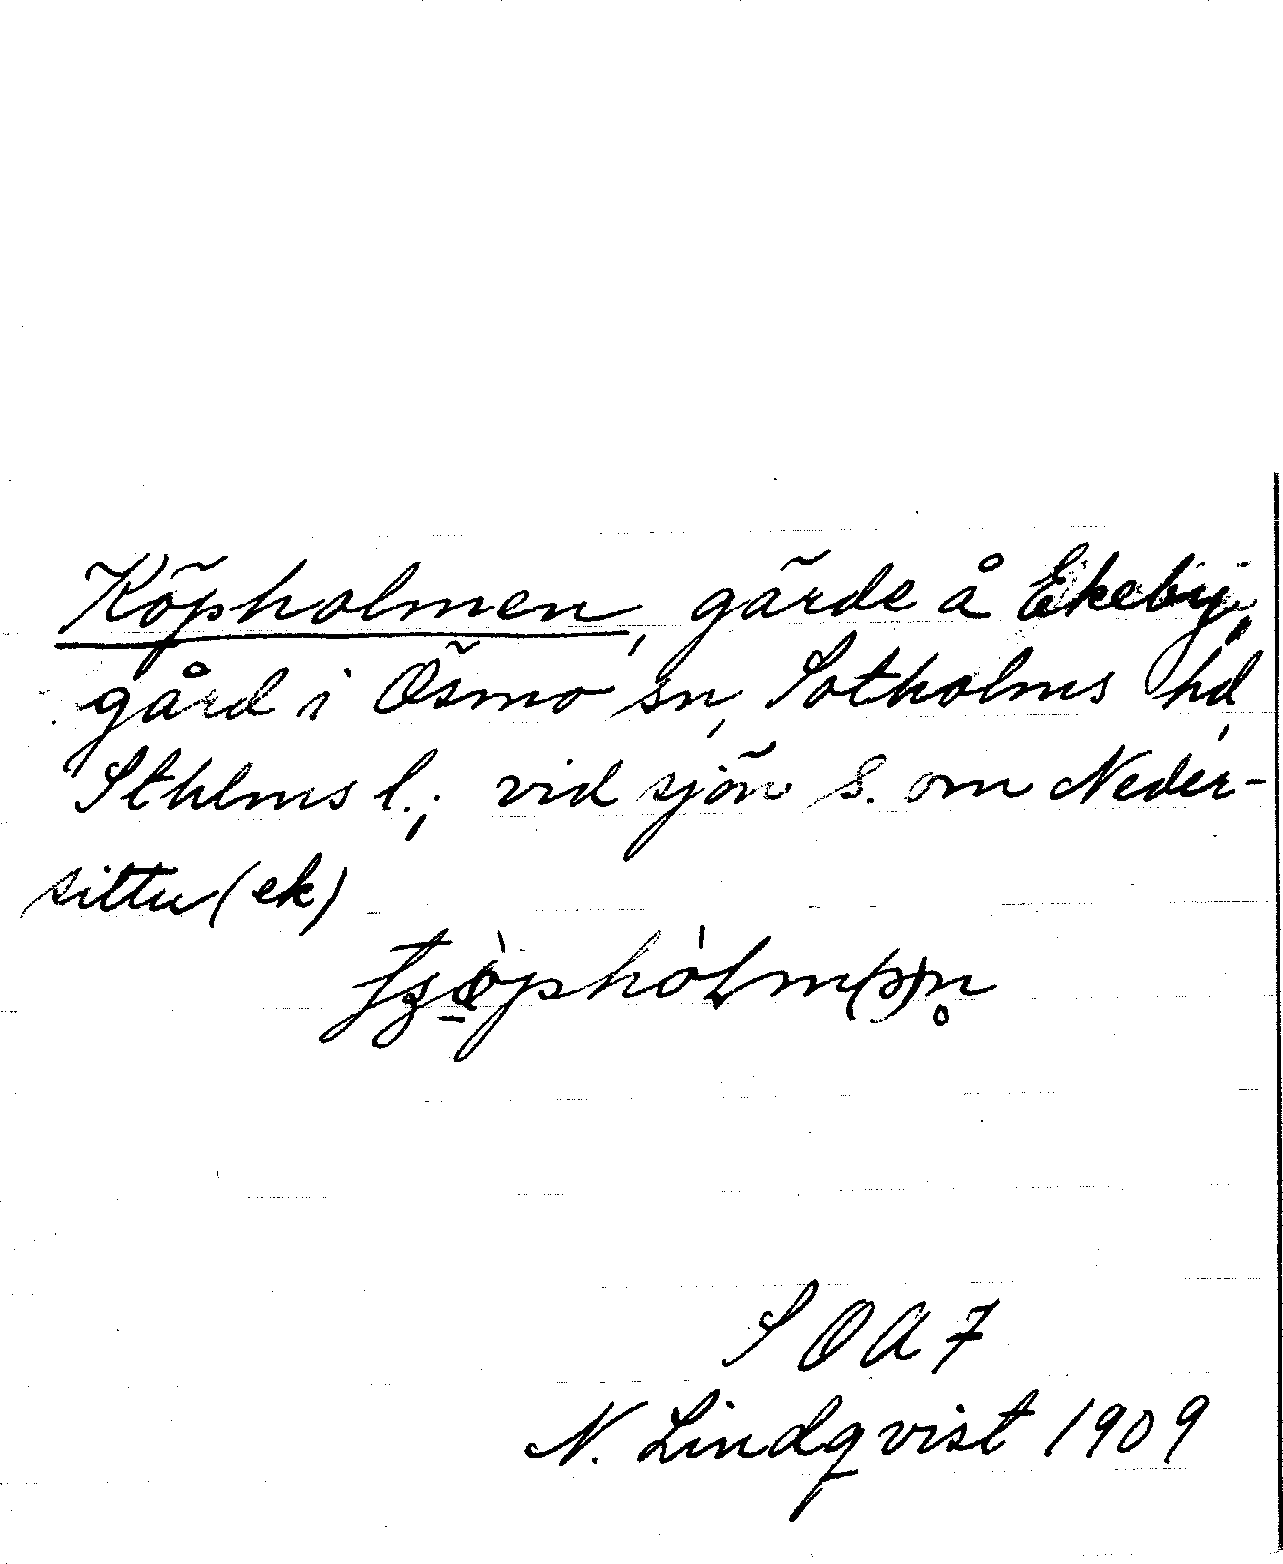 Köpholmen, gärde å Ekeby,
gård i Ösmo sn, Sotholms hd,
Sthlms l.; vid sjön S. om Neder-
sittu (ek)
SOA 7
N. Lindqvist 1909